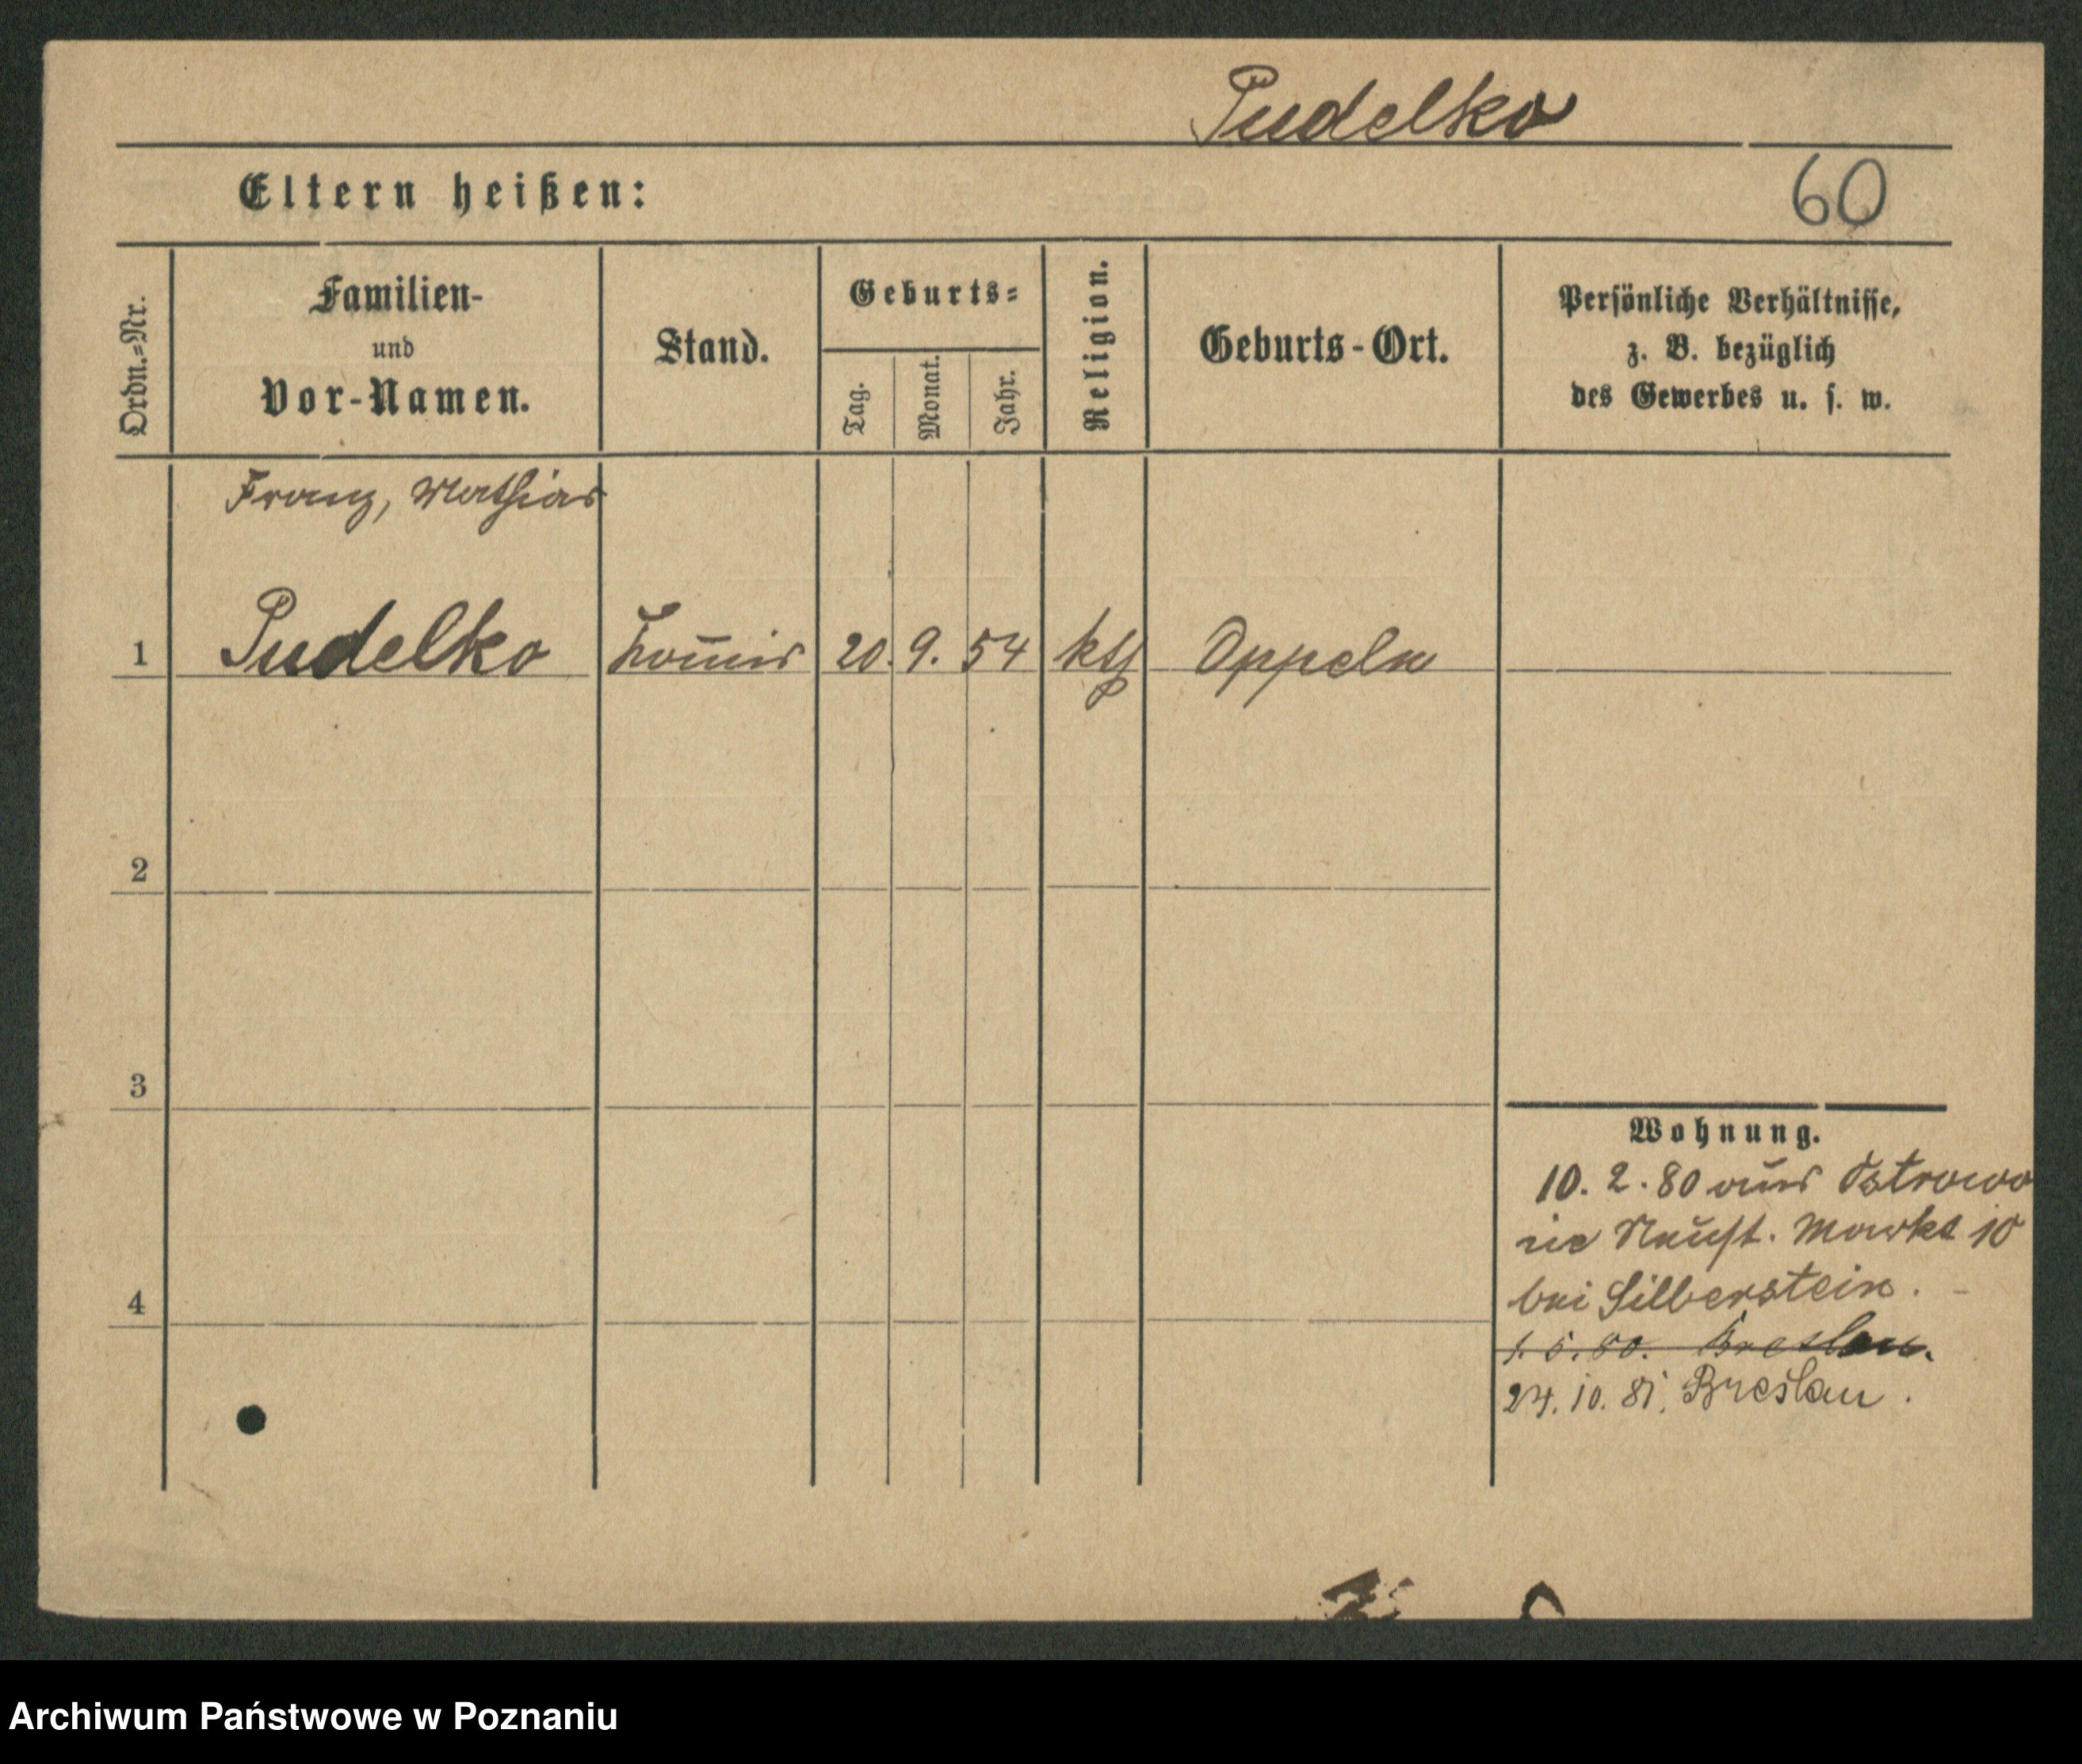 Pudelko
Eltern heißen:
60
Ordn.=Nr.
Familien-
und
Vor-Namen.
Stand.
Geburts=
Tag.
Monat.
Jahr.
Religion.
Geburts-Ort.
Persönliche Verhältnisse,
z. B. bezüglich
des Gewerbes u. s. w.
Franz, Mathias
1 Pudelko Commis 20. 9. 54 kth Oppeln
2
3
Wohnung.
10. 2. 80 aus Ostrowo
Neust. Markt 10
bei Silberstein.
4
1. 5. 80. Breslau.
24. 10. 81. Breslau.
Archiwum Państwowe w Poznaniu